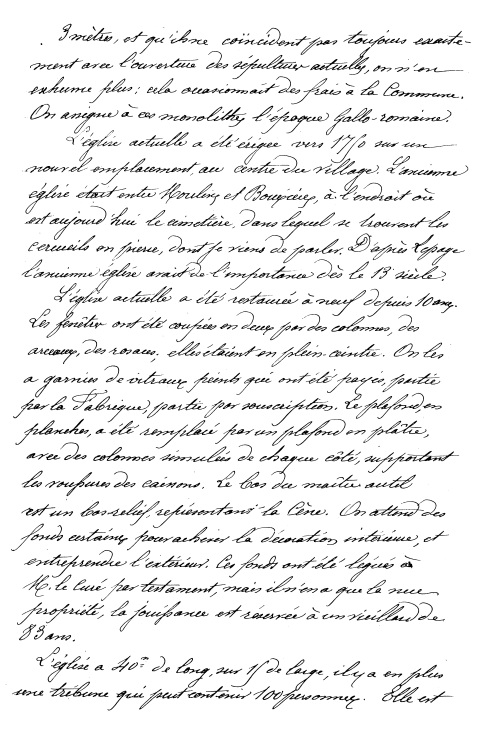 3 mètres, et qu'ils ne coïncident pas toujours exacte-
ment avec l'ouverture des sépultures actuelles, on n'en
exhume plus ; cela occasionnait des frais à la Commune.
On assigne à ces monolithes l'époque Gallo-romaine.
L'église actuelle a été érigée vers 1750 sur un
nouvel emplacement, au centre du village. L'ancienne
église était entre Moulins et Bouxières, à l'endroit où
est aujourd'hui le cimetière, dans lequel se trouvent les
cercueils en pierre, dont je viens de parler. D'après Lepage
l'ancienne église avait de l'importance dès le 13 siècle.
L'église actuelle a été restaurée à neuf depuis 10 ans.
Les fenêtres ont été coupées en deux par des colonnes, des
arceaux, des rosaces. elles étaient en plein-ceintre. On les
a garnies de vitraux peints qui ont été payés, partie
par la Fabrique, partie par souscription. Le plafond, en
planches, a été remplacé par un plafond en plâtre,
avec des colonnes simulées de chaque côté, supportant
les voussures des caissons. Le bas du maître autel
est un bas-relief, représentant la Cène. On attend des
fonds certains pour achever la décoration intérieure, et
entreprendre l'extérieur. Ces fonds ont été légués à
M. le Curé par testament, mais il n'en a que la nue
propriété, la jouissance est réservée à un vieillard de
83 ans.
L'église a 40m de long, sur 15 de large, il y a en plus
une tribune qui peut contenir 100 personnes. Elle est